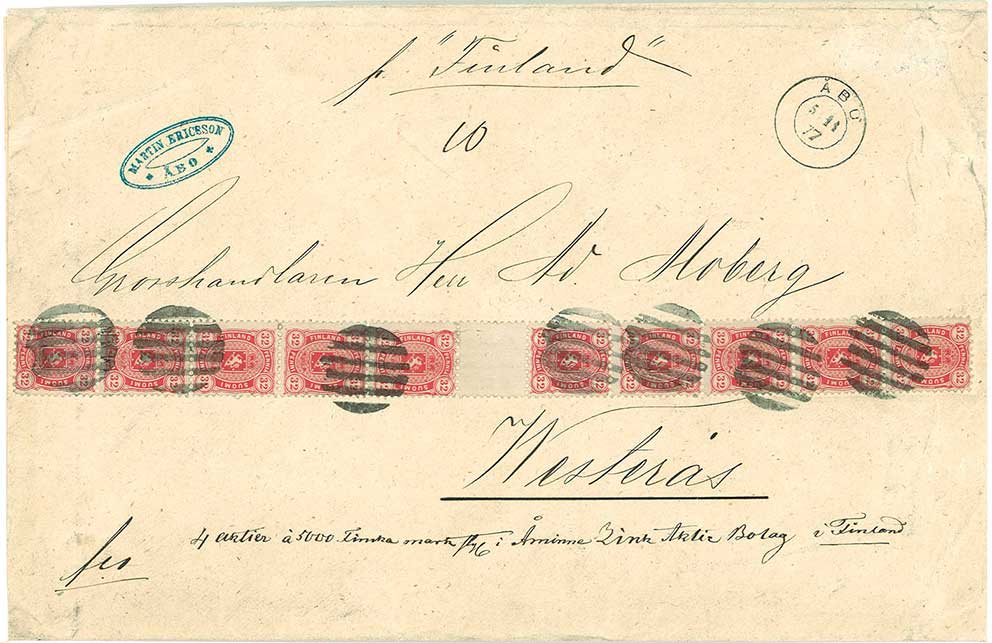 p. "Finland"
ÅBO
5 11
77
10
MARTIN ERICSSON
ÅBO
Grosshandlaren Herr Ad. Moberg
32 FINLAND 32
PENNIÄ
32 SUOMI 32
Westerås
4 aktier à 5000 Finska mark i Åminne Zink Aktie Bolag i Finland